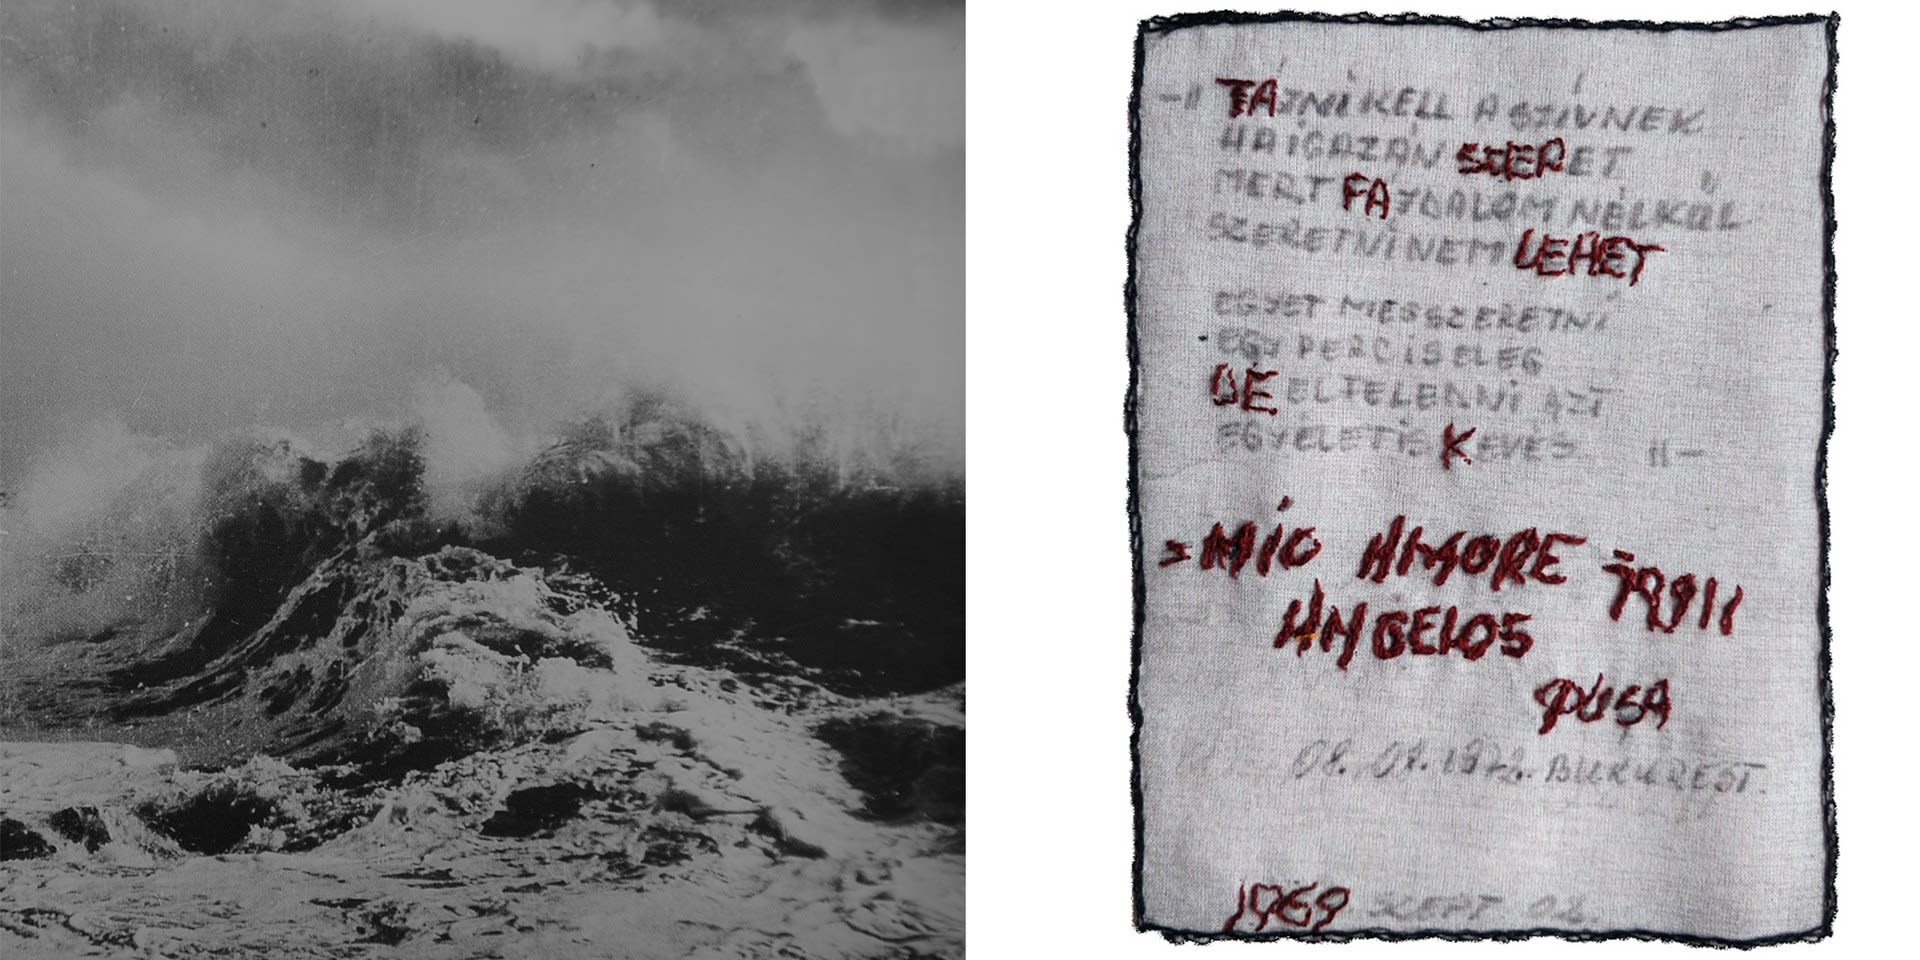 -" FÁJNI KELL A SZÍVNEK
HA IGAZÁN SZERET
MERT FÁJDALOM NÉLKÜL
SZERETNI NEM LEHET
EGYET MEGSZERETNI
EGY PERC IS ELEG
DE ELFELEDNI AZT
EGY ÉLET IS KEVÉS "-
MIO AMORE
ANGELOS
1972. BUKUREST.
1969 SZEPT. 02.